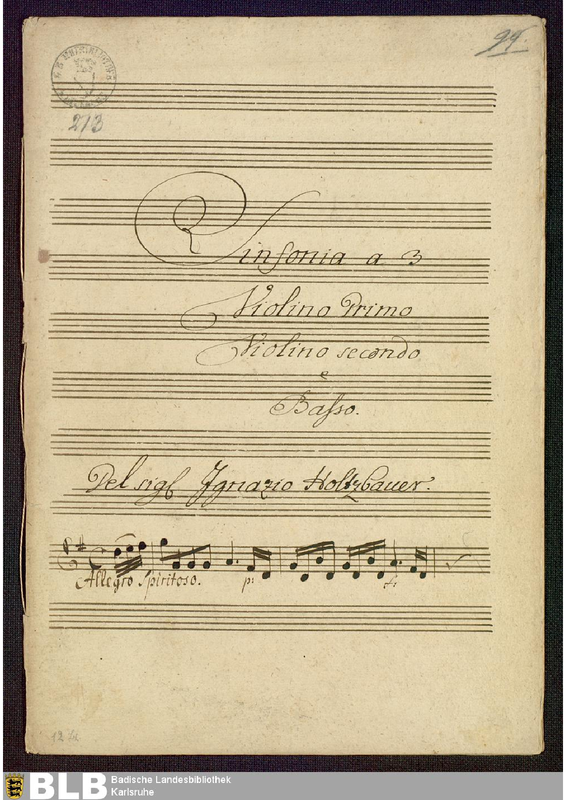 94.
213
Sinfonia a 3
Violino Primo
Violino secondo
e
Basso.
Del sigl Ignazio Holtzbauer.
Allegro Spiritoso. p: f:
12 bl
BLB Badische Landesbibliothek
Karlsruhe